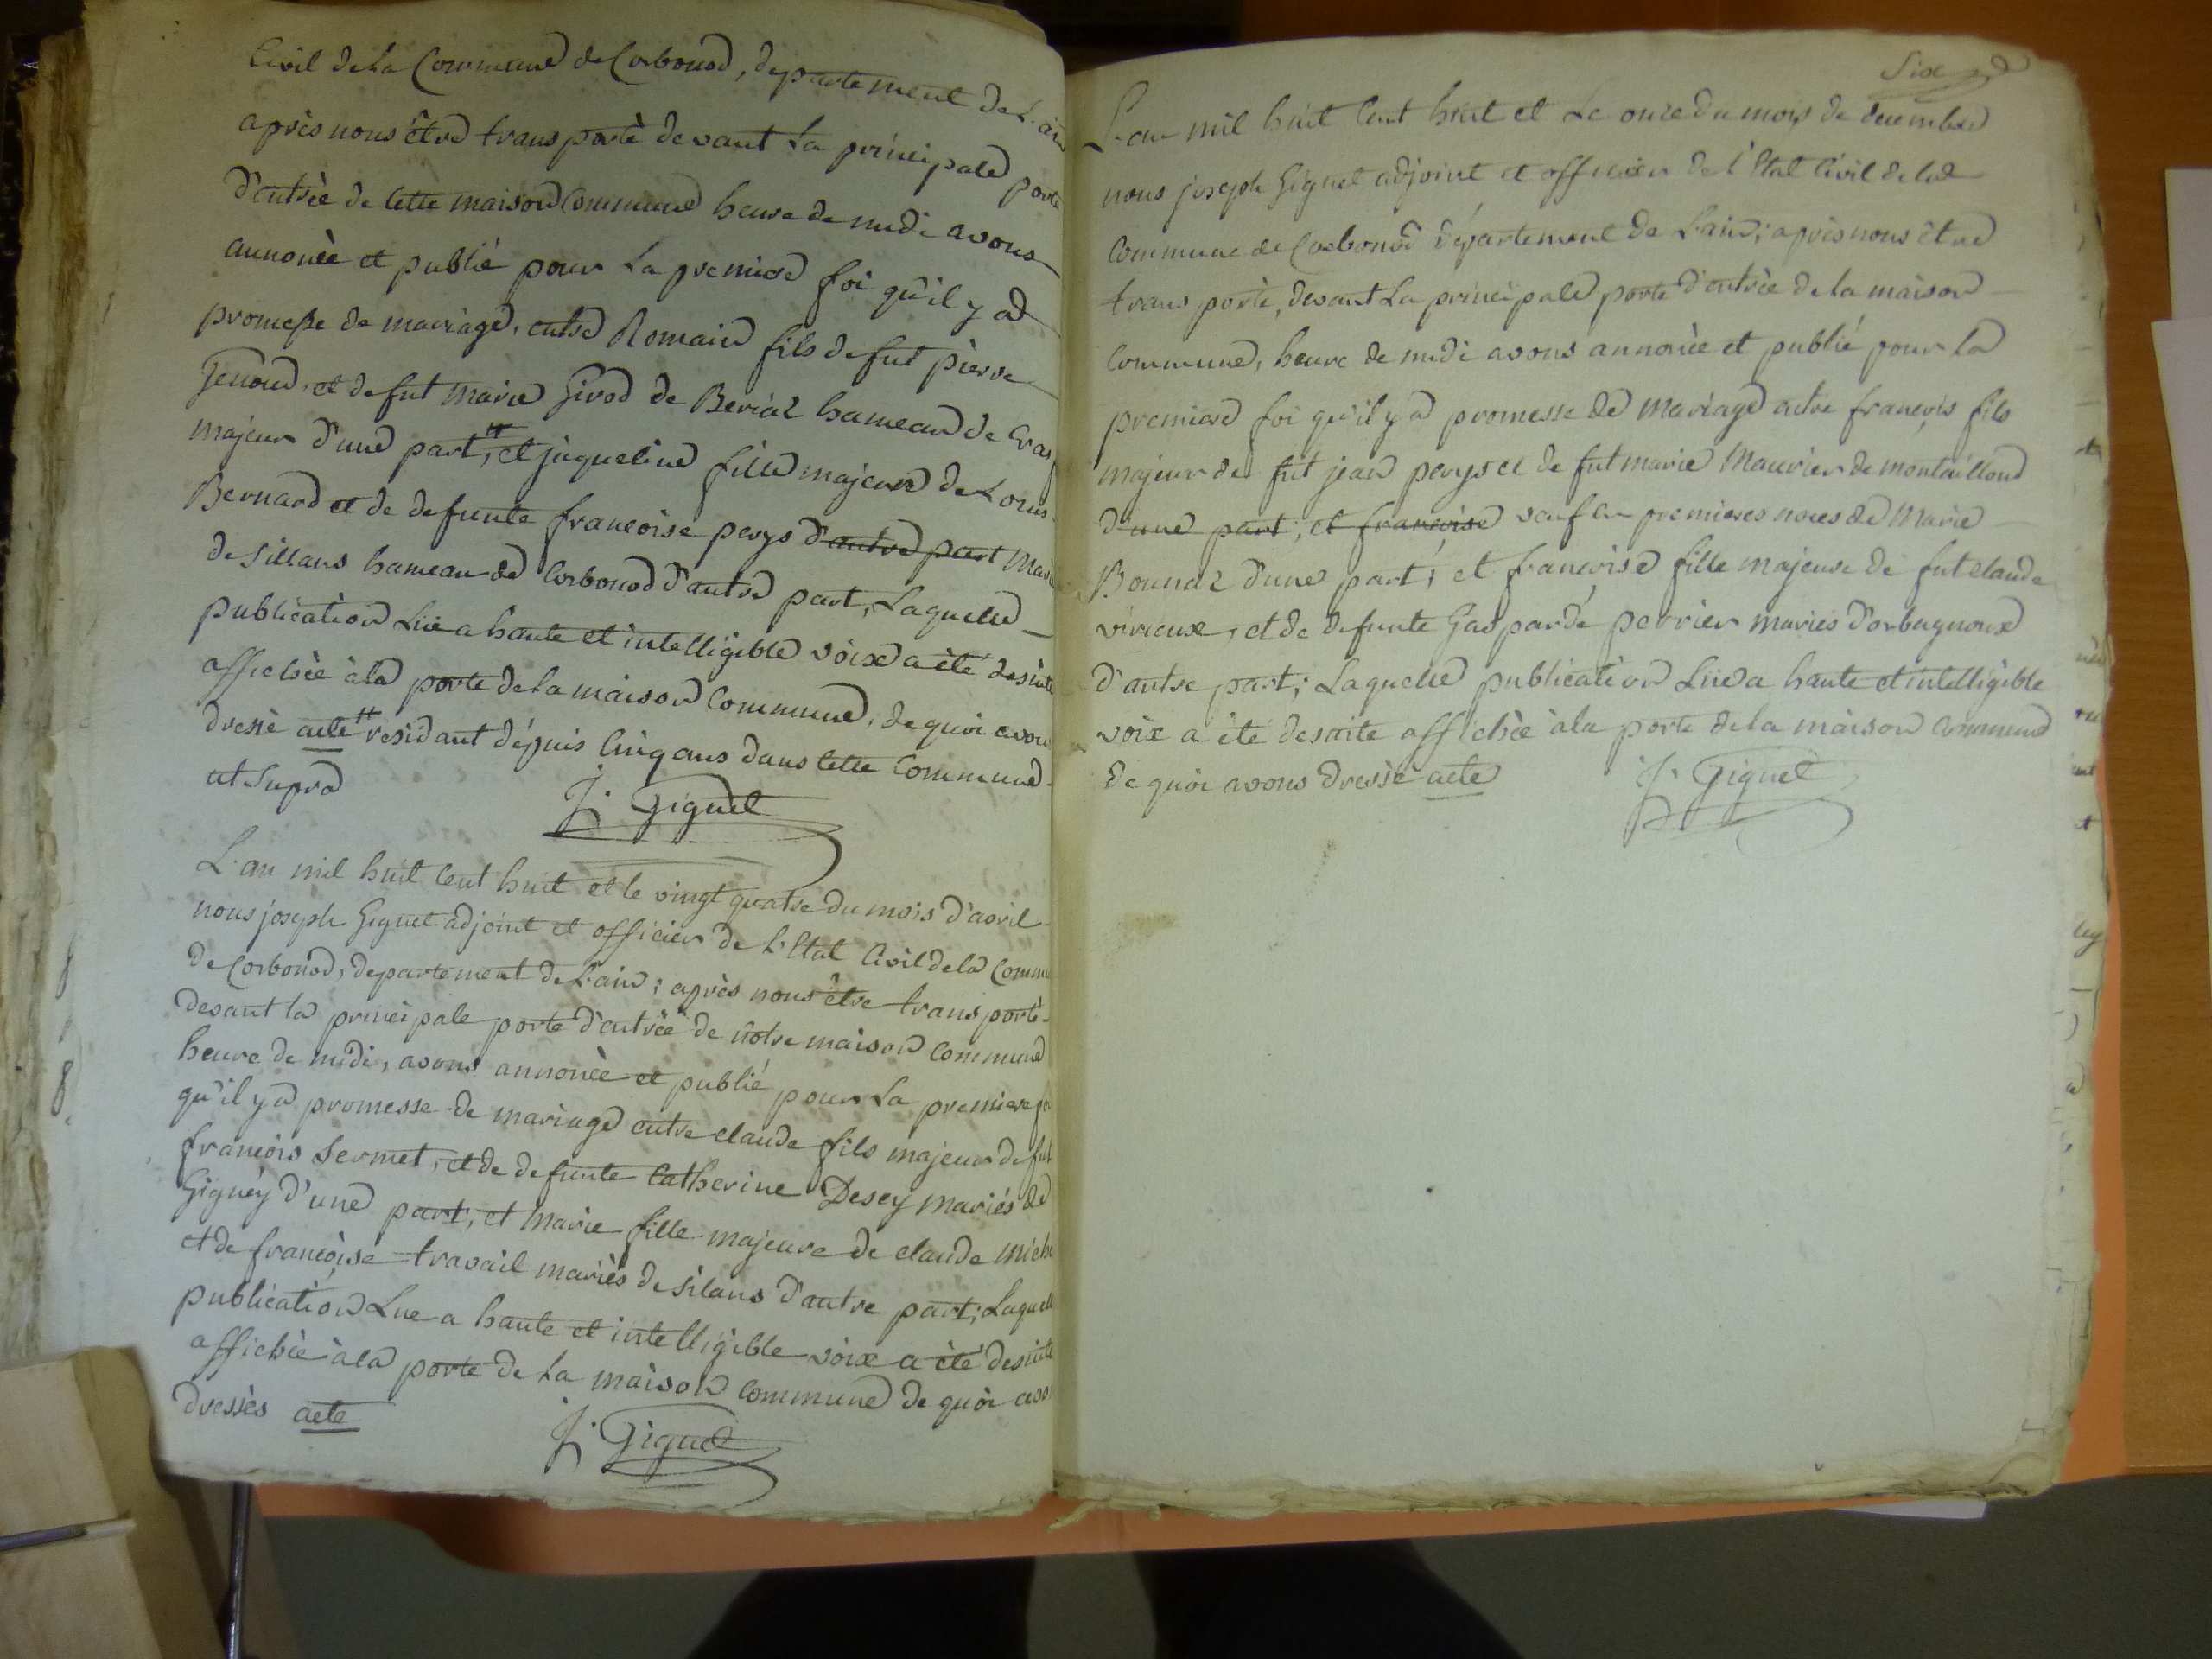 Civil de la Commune de Corbonod, departement de L'ain
après nous être transporté devant La principale porte
d'entrèe de cette maison Commune heure de midi avons
annoncè et publié pour La premiere foi qu'il y a
promesse de mariage, entre Romain fils de fut pierre
Jenoud, et de fut Marie Girod de Beriaz hameau de Cras
majeur d'une part, # et jaqueline fille majeure de Louis
Bernard et de defunte francoise perys d'autre part Mariés
de Sillans hameau de Corbonod d'autre part, Laquelle
publication Lüe a haute et intelligible voix a èté desuite
affichèe à la porte de la maison Commune, de quoi avons
dressè acte # residant dépuis Cinq ans dans cette Commune
ut Supra
J. Giguet
L'an mil huit Cent huit et le vingt quatre du mois d'avril
nous joseph Giguet adjoint et officier de L'Etat Civil de la Commune
de Corbonod, departement de L'ain; après nous être transporté
devant la principale porte d'entrée de nôtre maison Commune
heure de midi, avons annoncè et publié pour La premiere foi
qu'il y a promesse de mariage entre claude fils majeur de fut
francois Sermet, et de defunte Catherine Desey mariés de
Gignéy d'une part, et Marie fille majeure de claude
et de francoise travail mariés de silans d'autre part; Laquelle
publication Lue a haute et intelligible voix a èté desuite
affichèe à la porte de La maison Commune de quoi avons
dressès acte
J. Giguet
Six
L'an mil huit Cent huit et Le onze du mois de decembre
nous joseph Giguet adjoint et officier de l'Etat Civil de la
Commune de Corbonod département de L'ain; après nous être
transporté, devant La principale porte d'entrèe de la maison
Commune, heure de midi avons annoncèe et publié pour la
premiere foi qu'il y a promesse de Mariage entre francois fils
majeur de fut jean perys et de fut marie Mauvier de montailloud
d'une part; et francoise veuf en premieres noces de Marie
Bounaz d'une part; et francoise fille majeure de fut claude
virieux, et de defunte Gasparde perrier mariés d'orbagnoux
d'autre part; Laquelle publication Lüe a haute et intelligible
voix a été desuite affichèe à la porte de la maison Commune
de quoi avons dressé acte
J. Giguet